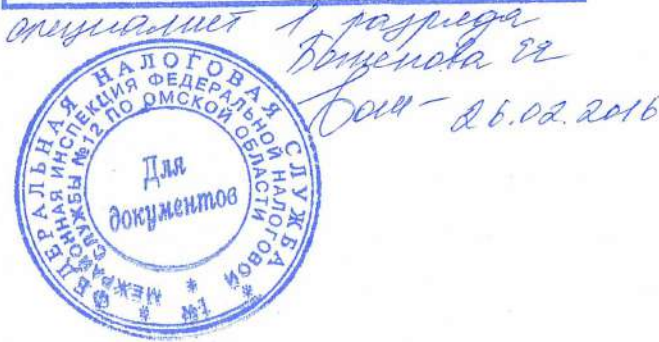 специалист 1 разряда
Баженова ЕЯ
26.02.2016
ФЕДЕРАЛЬНАЯ НАЛОГОВАЯ СЛУЖБА * №1 *
МЕЖРАЙОННАЯ ИНСПЕКЦИЯ ФЕДЕРАЛЬНОЙ НАЛОГОВОЙ
СЛУЖБЫ №12 ПО ОМСКОЙ ОБЛАСТИ
Для
документов